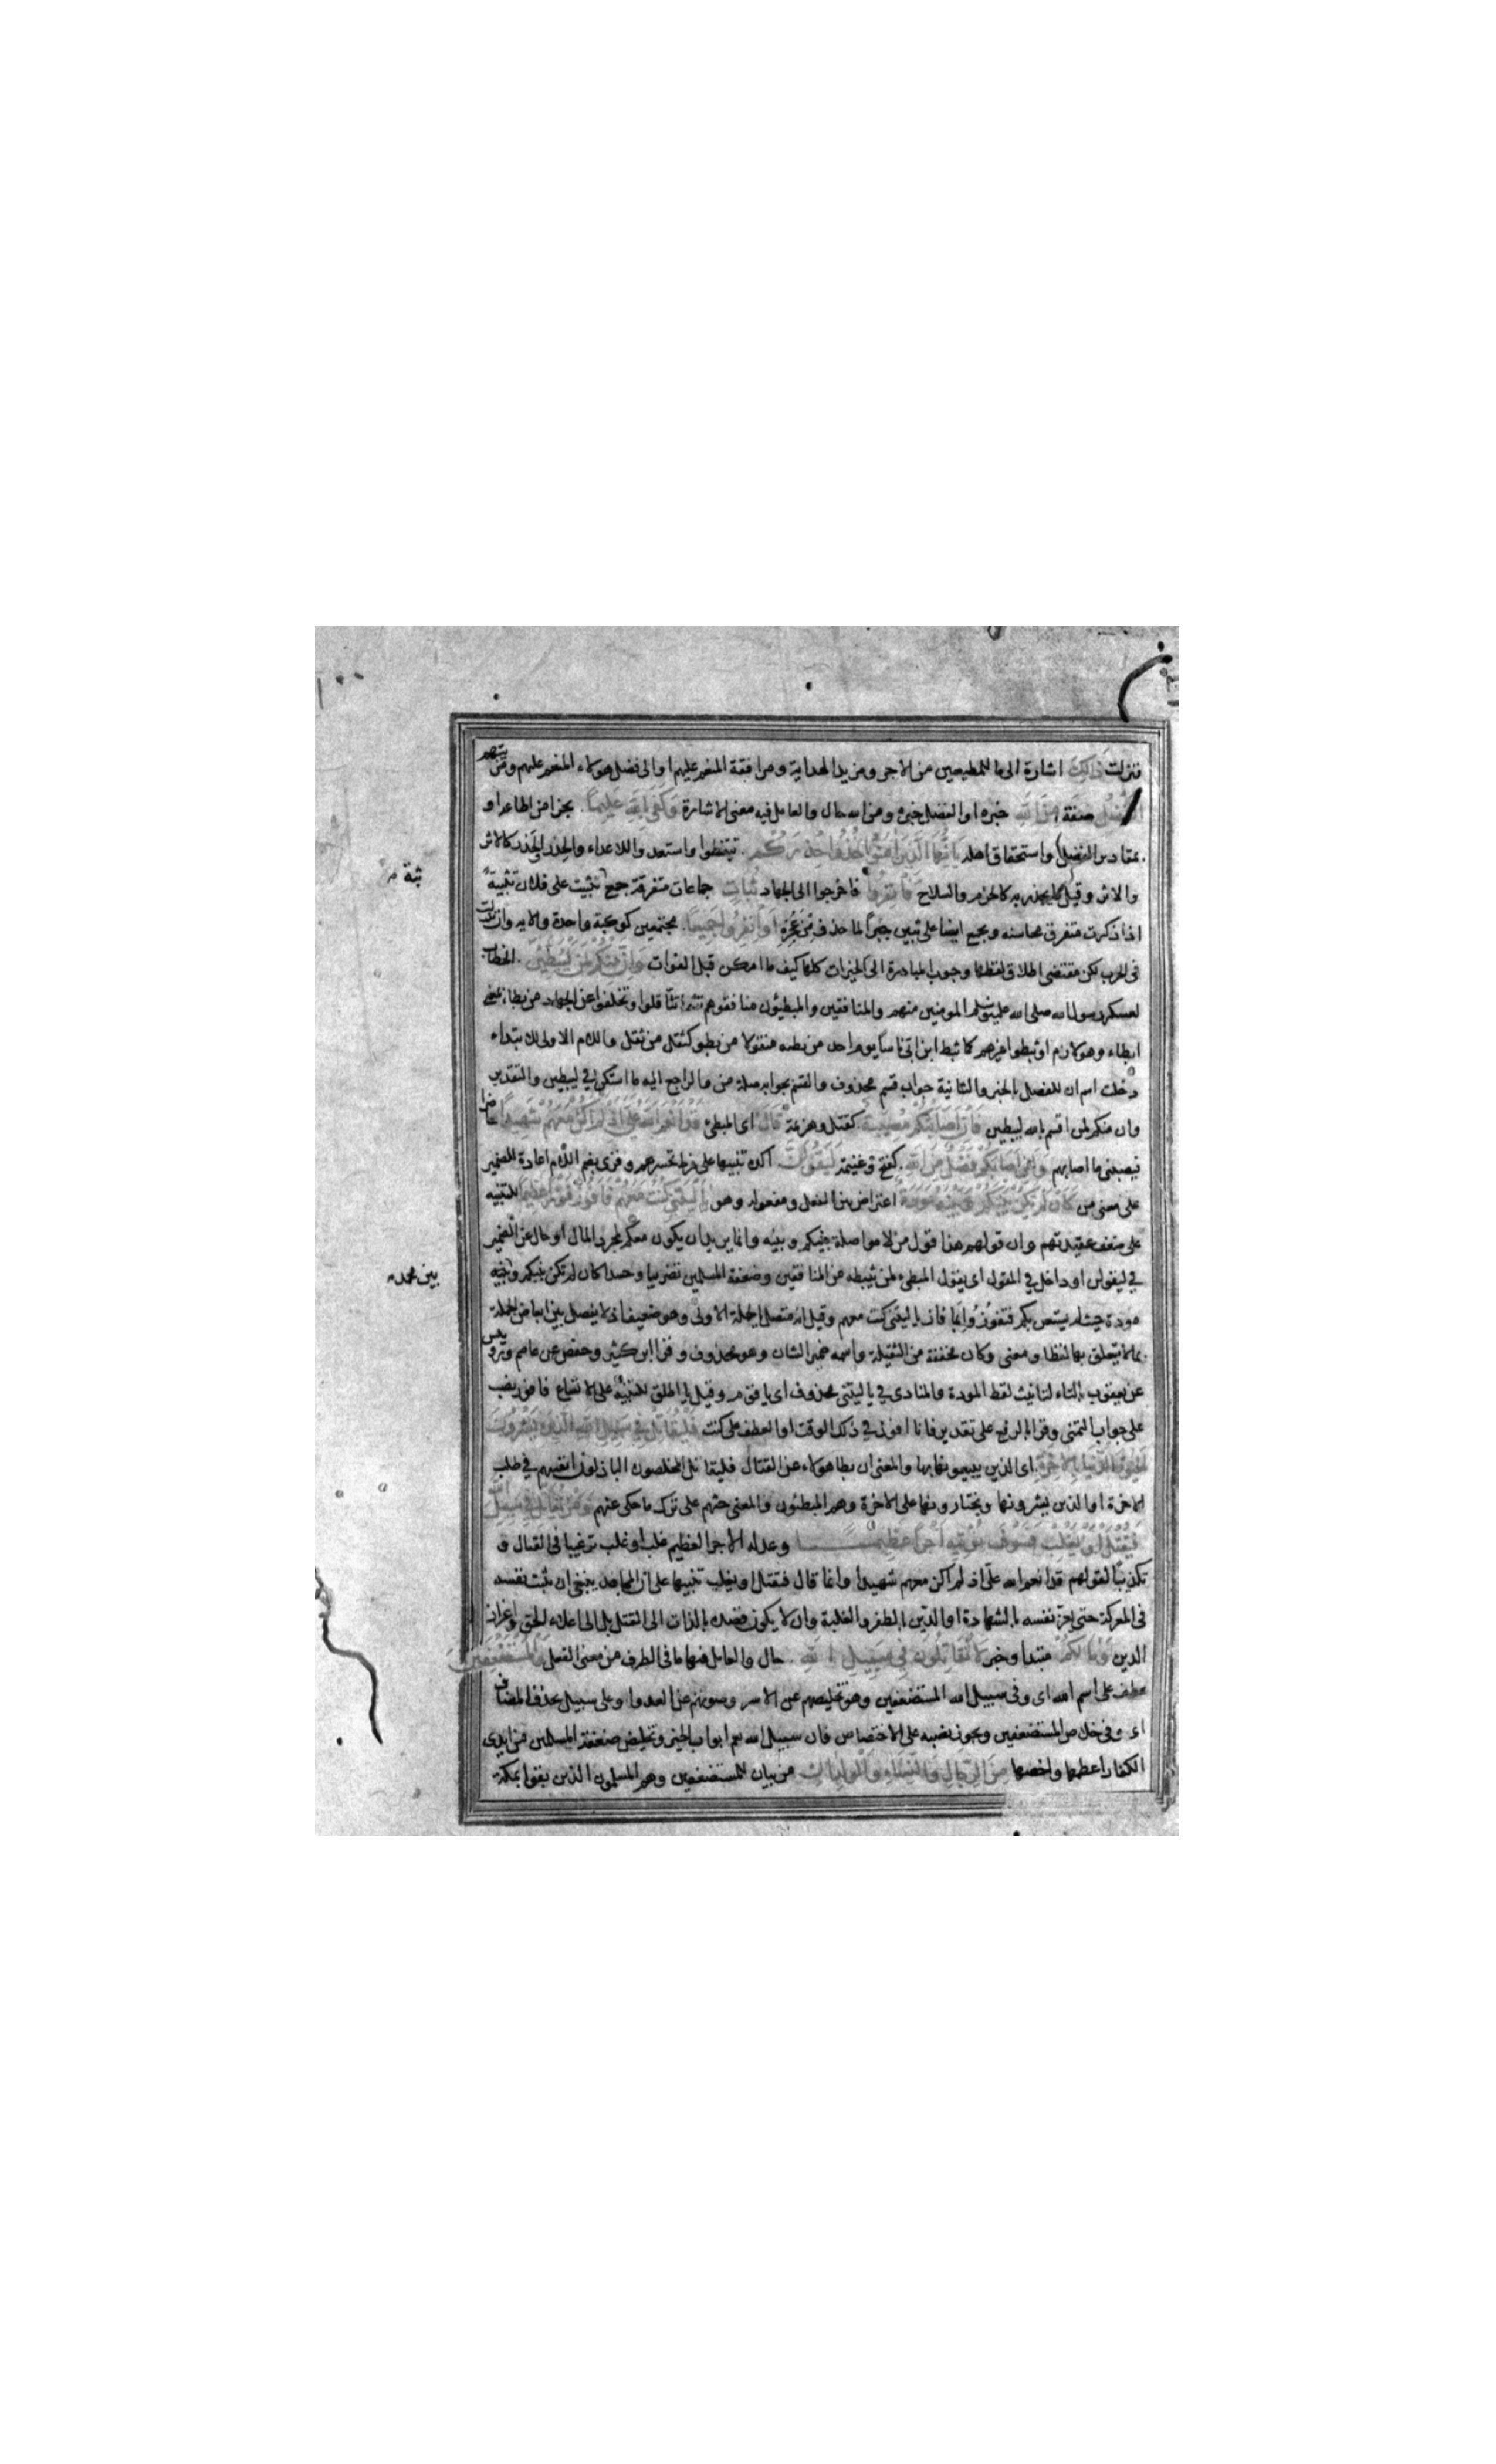 فنزلت ذلك اشارة الى ما للمطيعين من الاجر ومزيد الهداية ومرافقة المنعم عليهم او الى فضل هولاء المنعم عليهم ومزيتهم
الفضل صفة من الله خبره او الفضل خبره ومن الله حال والعامل فيه معنى الاشارة وكفى بالله عليما بجزا من اطاعه او
بمقادير الفضل واستحقاق اهله يا ايها الذين امنوا خذوا حذركم تيقظوا واستعدوا للاعداء والحذر الحذر كالاثر
والاثر وقيل ما يحذر به كالحزم والسلاح فانفروا فاخرجوا الى الجهاد ثبات جماعات متفرقة جمع ثبة من ثبيت على فلان تثبية
اذا ذكرت متفرق محاسنه ويجمع ايضا على ثبين جبرا لما حذف من عجزه او انفروا جميعا مجتمعين كوكبة واحدة والاية وان نزلت
فى الحرب لكن مقتضى اطلاق لفظها وجوب المبادرة الى الخيرات كلها كيف ما امكن قبل الفوات وان منكم لمن ليبطئن الخطاب
لعسكر رسول الله صلى الله عليه وسلم المومنين منهم والمنافقين والمبطئون منافقوهم تثاقلوا وتخلفوا عن الجهاد من بطأ بمعنى
ابطاء وهو لازم او ثبطوا غيرهم كما ثبط ابن ابي ناسا يوم احد من بطا منقولا من بطو كثقل من ثقل واللام الاولى للابتداء
دخلت اسم ان للفصل بالخبر والثانية جواب قسم محذوف والقسم بجوابه صلة من والراجع اليه ما استكن في ليبطئن والتقدير
وان منكم لمن اقسم بالله ليبطئن فان اصابتكم مصيبة كقتل وهزيمة قال اى المبطئ قد انعم الله على اذ لم اكن معهم شهيدا حاضرا
فيصيبنى ما اصابهم ولئن اصابكم فضل من الله كفتح وغنيمة ليقولن اكده تنبيها على فرط تحسرهم وقرئ بضم اللام اعادة للضمير
على معنى من كان لم يكن بينكم وبينه مودة اعتراض بين الفعل ومفعوله وهو يا ليتنى كنت معهم فافوز فوزا عظيما للتنبيه
على ضعف عقيدتهم وان قولهم هذا قول من لا مواصلة بينكم وبينه وانما يريد ان يكون معكم لمجرد المال او حال عن الضمير
في ليقولن او داخل في المقول اى يقول المبطئ لمن يثبطه من المنافقين وضعفة المسلمين تضريبا وحسدا كان لم تكن بينكم وبين محمد
مودة حيث لم يستعن بكم فتفوزوا بما فاز يا ليتنى كنت معهم وقيل انه متصل بالجملة الاولى وهو ضعيف اذ لا يفصل بين ابعاض الجملة
بما لا يتعلق بها لفظا ومعنى وكان مخففة من الثقيلة واسمه ضمير الشان وهو محذوف وقرا ابن كثير وحفص عن عاصم ورويس
عن يعقوب بالتاء لتانيث لفظ المودة والمنادى في يا ليتنى محذوف اى يا قوم وقيل يا اطلق للتنبيه على الاتساع فافوز نصب
على جواب التمنى وقرا بالرفع على تقدير فانا افوز في ذلك الوقت او العطف على كنت فليقاتل في سبيل الله الذين يشرون
الحيوة الدنيا بالاخرة اى الذين يبيعونها بها والمعنى ان بطا هولاء عن القتال فليقاتل المخلصون الباذلون انفسهم في طلب
الاخرة او الذين يشرونها ويختارونها على الاخرة وهم المبطئون والمعنى حثهم على ترك ما حكى عنهم ومن يقاتل في سبيل الله
فيقتل او يغلب فسوف نؤتيه اجرا عظيما وعد له الاجر العظيم غلب او غلب ترغيبا فى القتال و
تكذيبا لقولهم قد انعم الله على اذ لم اكن معهم شهيدا وانما قال فيقتل او يغلب تنبيها على ان المجاهد ينبغي ان يثبت نفسه
فى المعركة حتى يعز نفسه بالشهادة او الدين بالظفر والغلبة وان لا يكون قصده بالذات الى القتل بل الى اعلاء الحق واعزاز
الدين وما لكم مبتدا وخبر لا تقاتلون في سبيل الله حال والعامل فيها ما فى الظرف من معنى الفعل والمستضعفين
عطف على اسم الله اى وفى سبيل الله المستضعفين وهو تخليصهم عن الاسر وصونهم عن العدو او على سبيل بحذف المضاف
اى وفى خلاص المستضعفين ويجوز نصبه على الاختصاص فان سبيل الله يعم ابواب الخير وتخليص ضعفة المسلمين من ايدى
الكفار اعظمها واخصها من الرجال والنساء والولدان من بيان للمستضعفين وهم المسلمون الذين بقوا بمكة
ثبة
بين محمد